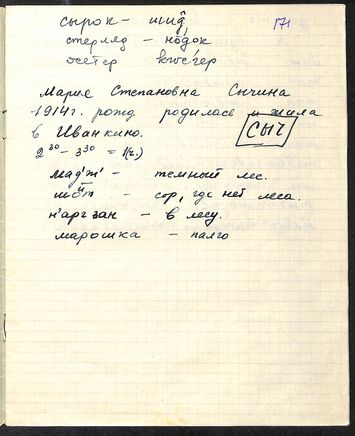 171
сырок – шиӣ
стерляд – нӧдок
осетер
Марие Степановна Сычина
1914 г. рожд родилась и жила
в Иванкино.
СЫЧ
2 30 – 3 30 = 1(ч.)
мадʼжʼ – темный лес.
– сор, где нет леса.
нʼаргзан – в лесу.
марошка – палго